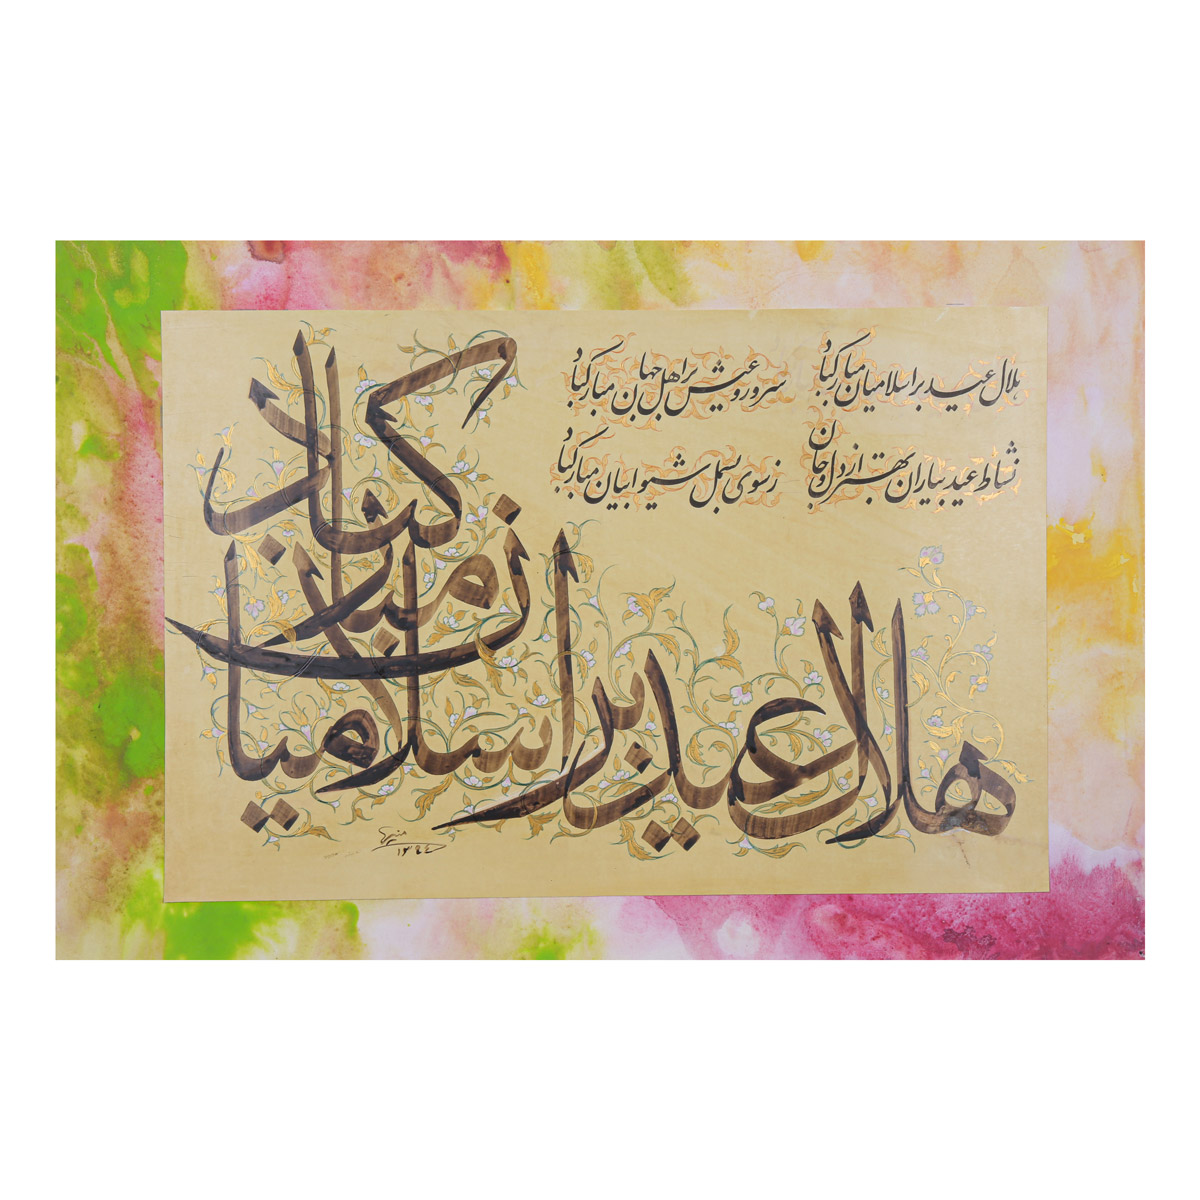 هلال عید بر اسلامیان مبارکباد سرور و عیش بر اهل جهان مبارکباد
نشاط عید بیاران بهتر از دل و جان ز سوی بسمل شیوابیان مبارکباد
هلال عید بر اسلامیان مبارکباد
۱۳۹۴